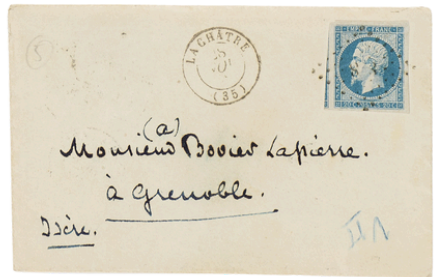 5
LA CHÂTRE
(35)
EMPIRE FRANC
(a)
Monsieur Bovier Lapierre.
à Grenoble.
Isère.